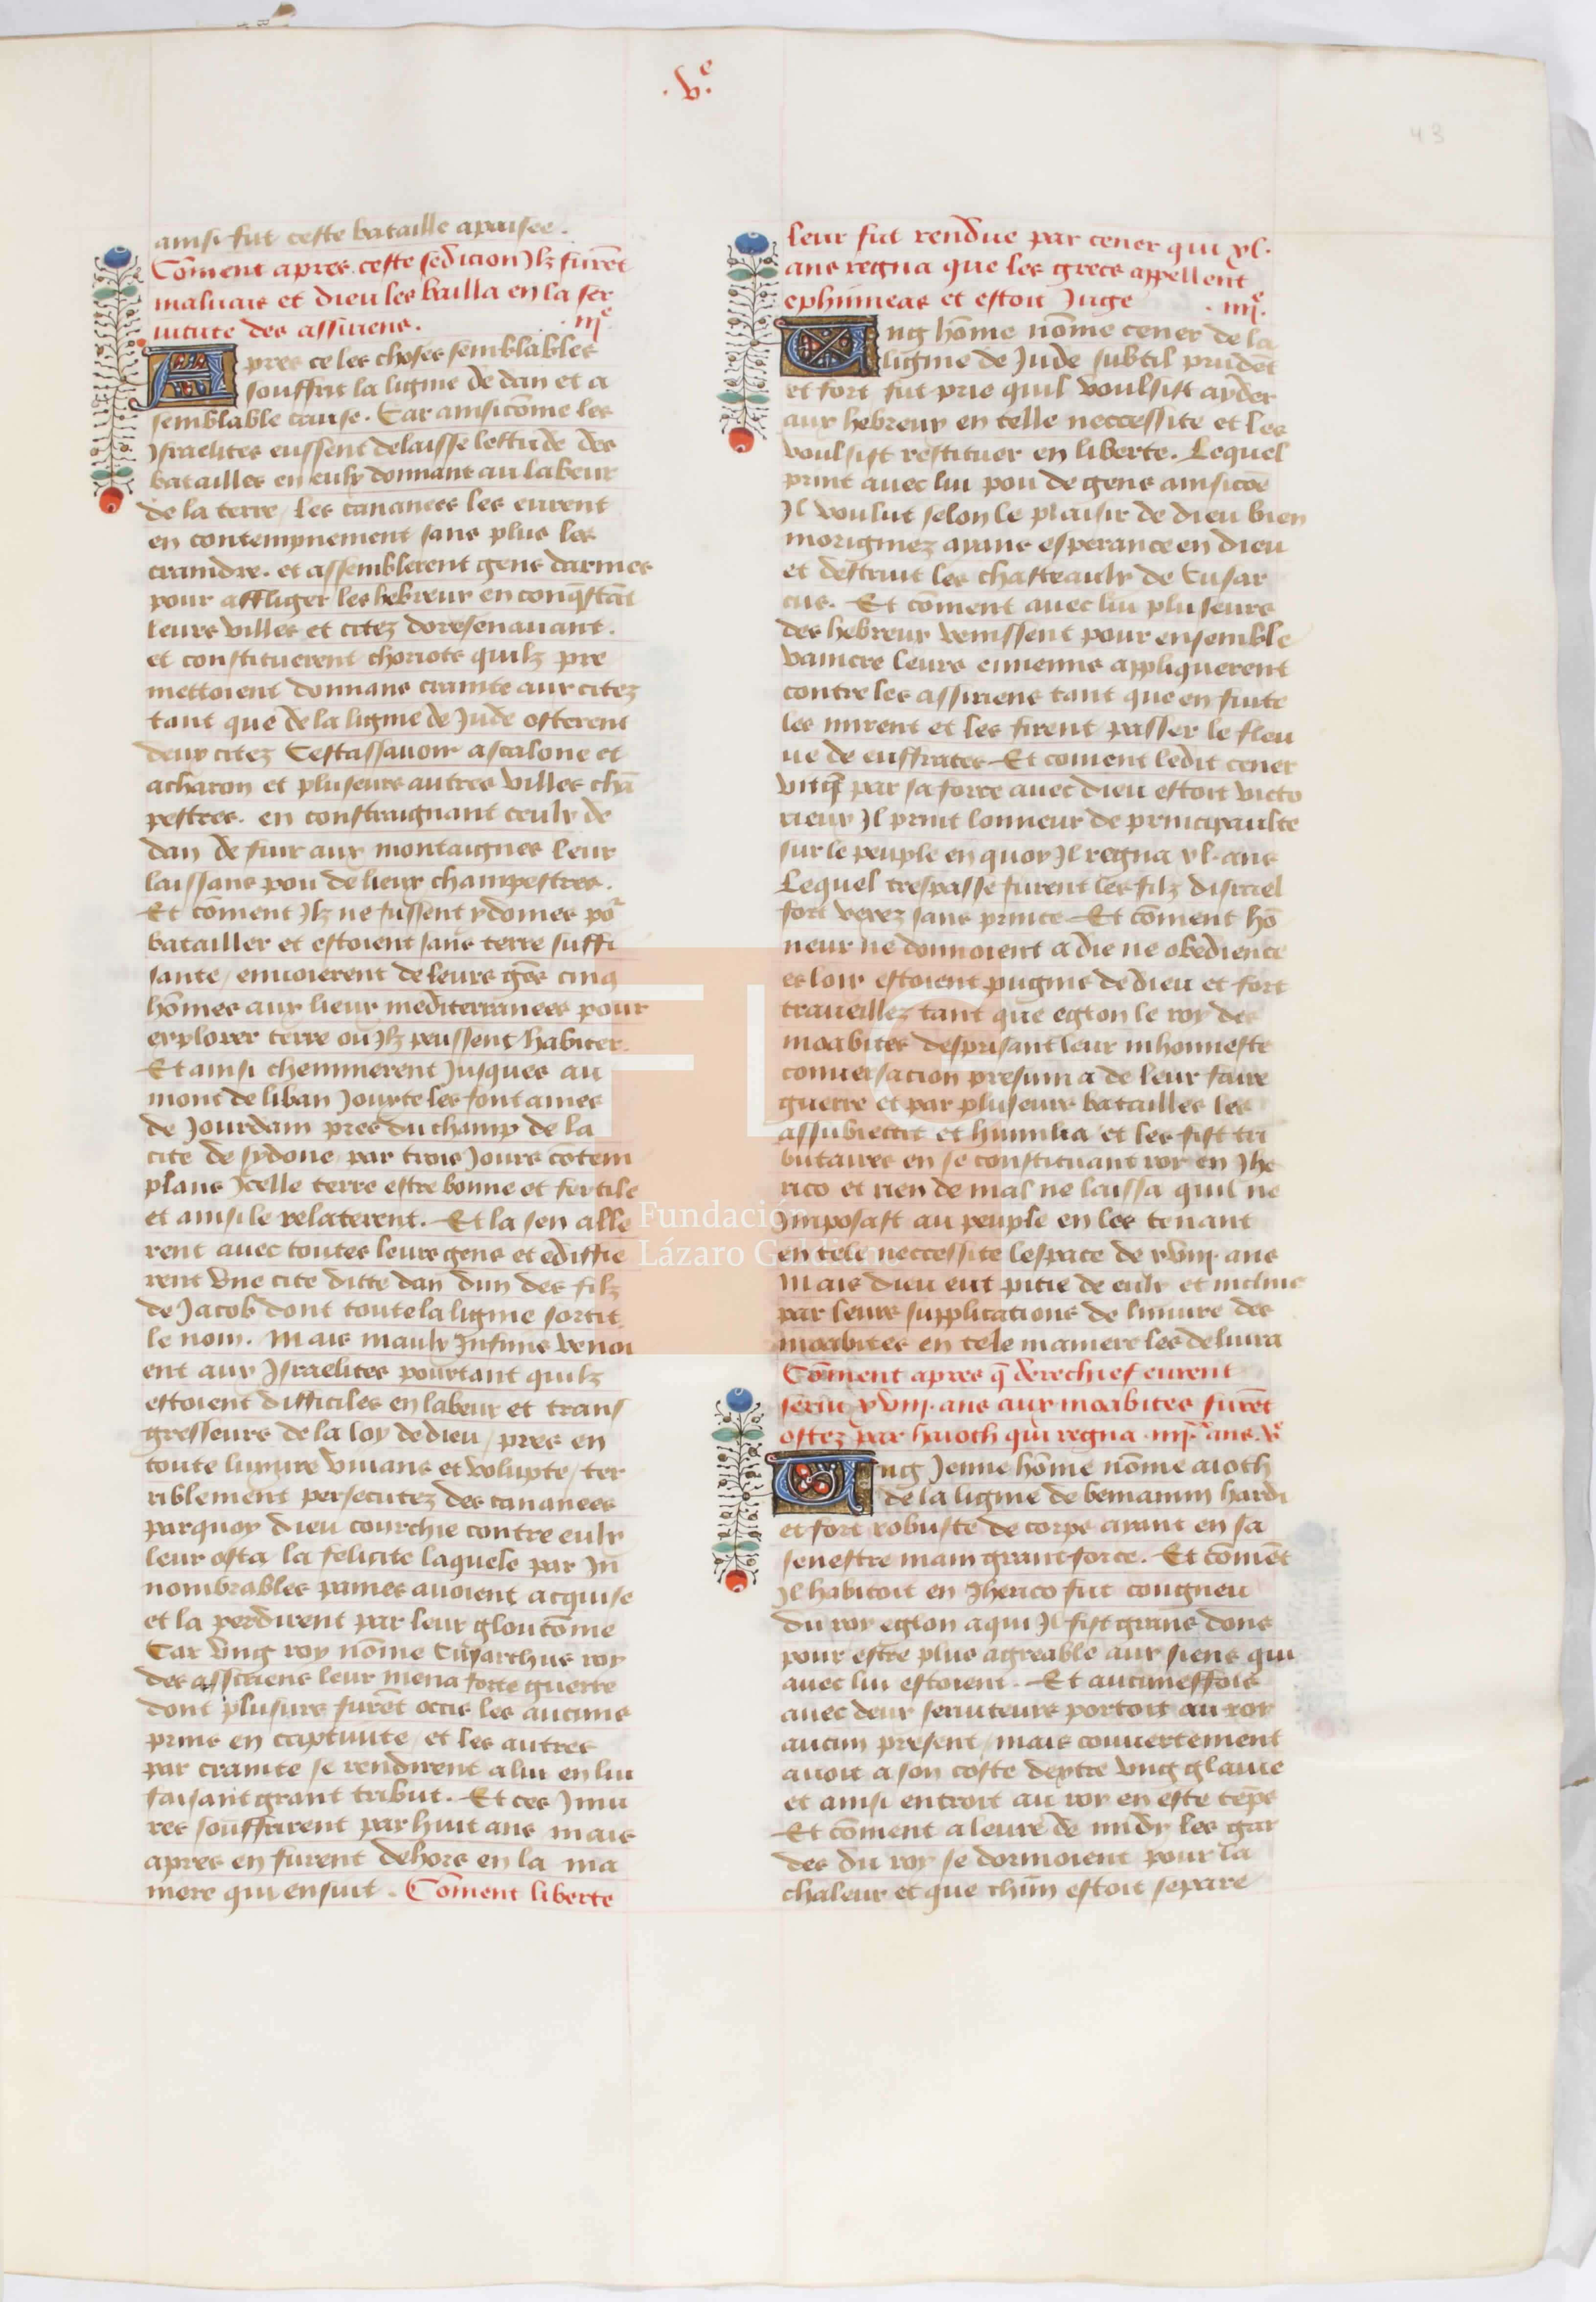 .v.e
43
ainsi fut ceste bataille apaisee.
Cōment apres ceste sedicion Jlz furēt
maluais et dieu les bailla en la ser
uitute des assiriens. .iije.
Apres ce les choses semblables
souffrit la ligne de dan et a
semblable cause. Car ainsi cōme les
Jsraelites eussent delaisse lestude des
batailles en eulx donnant au labeur
de la terre / les cananees les eurent
en contempnement sans plus les
craindre. et assemblerent gens darmes
pour affliger les hebreux en conq̄stāt
leurs villes et citez doresenauant.
et constituerent choriots quilz pre
mettoient donnans crainte aux citez
tant que de la ligne de Jude osterent
deux citez Cestassauoir ascalone et
acharon et pluseurs autres villes chā
pestres. en constraignant ceulx de
dan de fuir aux montaignes leur
laissans pou de lieux champestres.
Et cōment Jlz ne fussent ydoines por
batailler et estoient sans terre suffi
sante / enuoierent de leurs gēs cinq
hōmes aux lieux mediterranees pour
explorer terre ou Jlz peussent habiter.
Et ainsi cheminerent Jusques au
mont de liban Jouxte les fontaines
de Jourdain pres du champ de la
cite de sydone par trois Jours cōtem
plans Jcelle terre estre bonne et fertile
et ainsi le relaterent. Et la sen alle
rent auec toutes leurs gens et ediffie
rent vne cite ditte dan dun des filz
de Jacob dont toute la ligne sortit
le nom. Mais maulx Infinis venoi
ent aux Jsraelites pourtant quilz
estoient difficiles en labeur et trans
gresseurs de la loy de dieu / pres en
toute luxure viuans et volupte / ter
riblement persecutez des cananees
parquoy dieu courchie contre eulx
leur osta la felicite laquele par Jn
nombrables paines auoient acquise
et la perdirent par leur gloutōnie
Car vng roy nōme Cusarchus roy
des assiriens leur mena forte guerre
dont plusurs furēt occis les aucuns
prins en captiuite / et les autres
par crainte se rendirent a lui en lui
faisant grant tribut. Et ces Jniu
res souffrirent par huit ans mais
apres en furent dehors en la ma
niere qui ensuit. Cōment liberte
leur fut rendue par cener qui xl.
ans regna que les grecs appellent
ephimeas et estoit Juge .iiije.
Vng hōme nōme cener de la
ligne de Jude subtil prudēt
et fort fut prie quil voulsist ayder
aux hebreux en telle neccessite et les
voulsist restituer en liberte. Lequel
print auec lui pou de gens ainsi cōe
Jl voulut selon le plaisir de dieu bien
moriginez ayans esperance en dieu
et destruit les chasteaulx de Cusar
cus. Et cōment auec lui pluseurs
des hebreux venissent pour ensemble
vaincre leurs ennemis appliquerent
contre les assiriens tant que en fuite
les mirent et les firent passer le fleu
ue de euffrates Et coment ledit cener
par sa force auec dieu estoit victo
rieux Jl print lonneur de principaulte
sur le peuple en quoy Jl regna xl. ans
Lequel trespasse furent les filz disrael
fort vexez sans prince Et cōment hō
neur ne donnoient a die ne obedience
es loix estoient pugnis de dieu et fort
traueillez tant que eglon le roy des
moabites desprisant leur inhonneste
conuersacion presuma de leur faire
guerre et par pluseurs batailles les
assubiectit et humilia et les fist tri
butaires en se constituant roy en Jhe
rico et rien de mal ne laissa quil ne
Jmposast au peuple en les tenant
en tele neccessite lespace de xviij. ans
Mais dieu eut pitie de eulx et incline
par leurs supplications de liniure des
moabites en tele maniere les deliura
Cōment apres q̄ derechief eurent
serui xviij. ans aux moabites furēt
ostez par haioth qui regna .iiijxx. ans. ve
Vng Jenne hōme nōme aioth
de la ligne de beniamin hardi
et fort robuste de corps aiant en sa
senestre main grant force. Et comēt
Jl habitoit en Jherico fut congneu
du roy eglon a qui Jl fist grans dons
pour estre plus agreable aux siens qui
auec lui estoient. Et aucuneffois
auec deux seruiteurs portoit au roy
aucun present / mais couuertement
auoit a son coste dextre vng glaiue
et ainsi entroit au roy en este tēps
Et cōment a leure de midy les gar
des du roy se dormoient pour la
chaleur et que chūn estoit separe
Fundación
Lázaro Galdiano
FLG